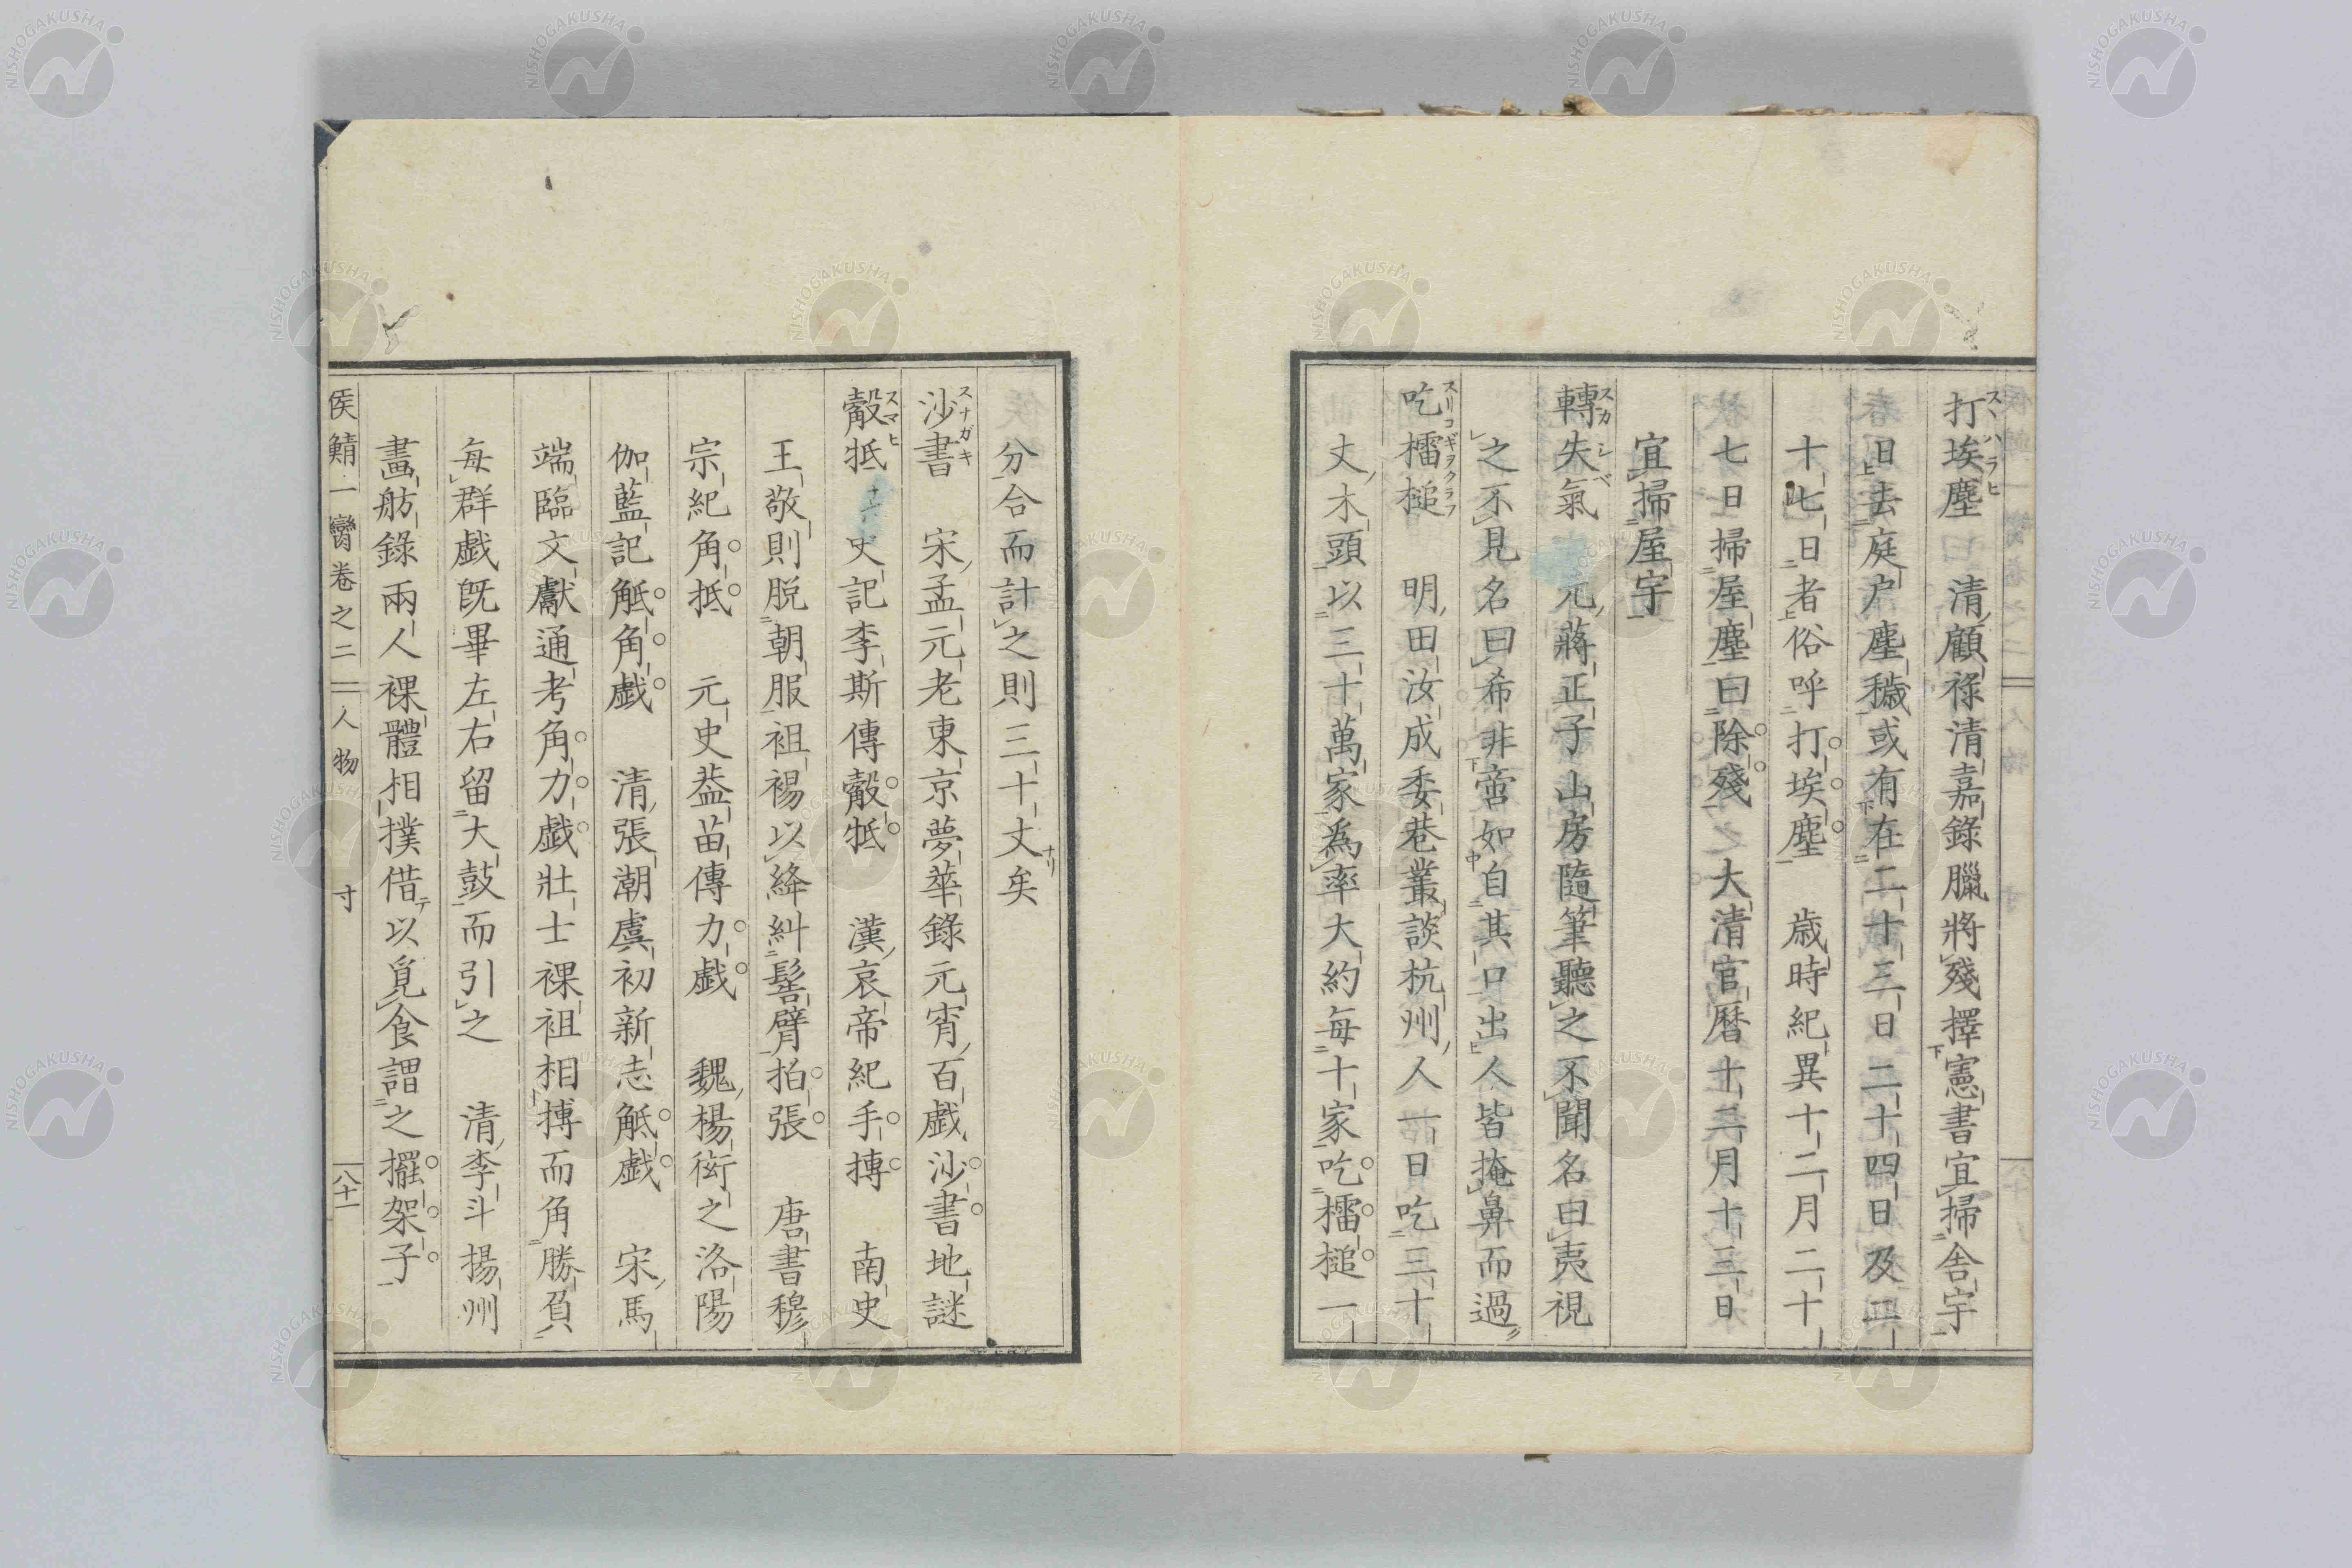 打埃塵　清顧祿清嘉錄臘將殘擇憲書宜掃舍宇
日去庭户塵穢或有在二十三日二十四日及二
十七日者俗呼打埃塵　歳時紀異十二月二十
七日掃屋塵曰除殘　大清官曆十二月十三日
宜掃屋宇
轉失氣　元蔣正子山房隨筆聽之不聞名曰夷視
之不見名曰希非啻如自其口出人皆掩鼻而過
吃擂槌　明田汝成委巷叢談杭州人一日吃三十
丈木頭以三十萬家為率大約每十家吃擂槌一
分合而計之則三十丈矣
沙書　宋孟元老東京夢華錄元宵百戯沙書地謎
觳抵　史記李斯傳觳抵　漢哀帝紀手搏　南史
王敬則脱朝服袒裼以絳糾髻臂拍張　唐書穆
宗紀角抵　元史葢苗傳力戯　魏楊衒之洛陽
伽藍記觝角戯　清張潮虞初新志觝戯　宋馬
端臨文獻通考角力戯壯士裸袒相搏而角勝負
每群戯既畢左右留大鼓而引之　清李斗揚州
畫舫錄兩人裸體相撲借以覓食謂之擺架子
侯鯖一臠卷之二　人物　寸　八十一